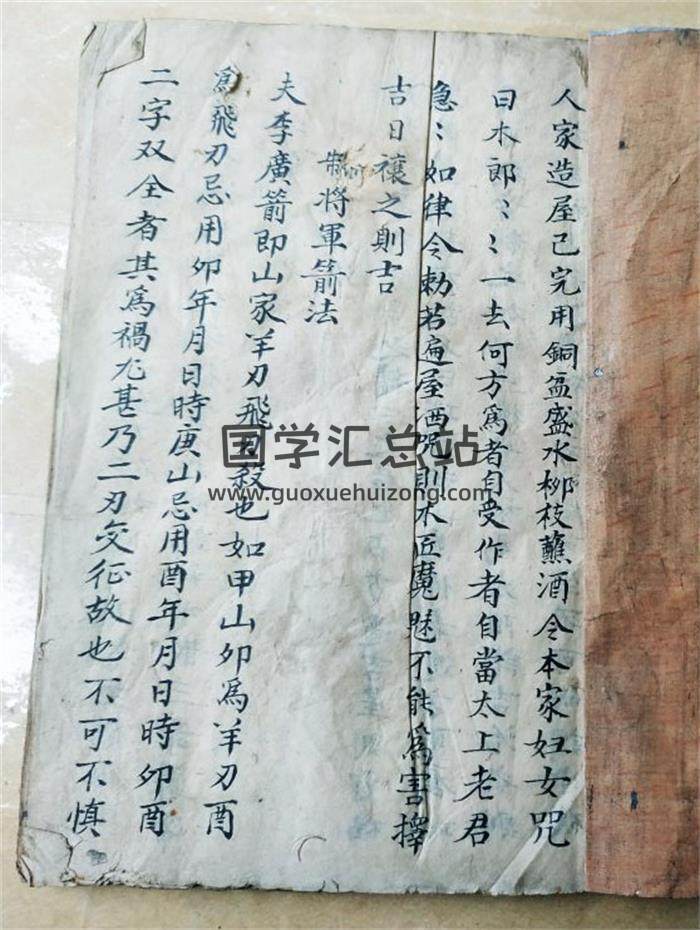 人家造屋已完用銅盆盛水柳枝蘸酒令本家妇女咒
曰木郎〻〻一去何方為者自受作者自當太上老君
急〻如律令勅若遍屋洒咒則木匠魔魅不能為害擇
吉日禳之則吉
制將軍箭法
夫李廣箭即山家羊刃飛刃殺也如甲山卯為羊刃酉
為飛刃忌用卯年月日時庚山忌用酉年月日時卯酉
二字双全者其為禍尤甚乃二刃交征故也不可不慎
国学汇总站
www.guoxuehuizong.com